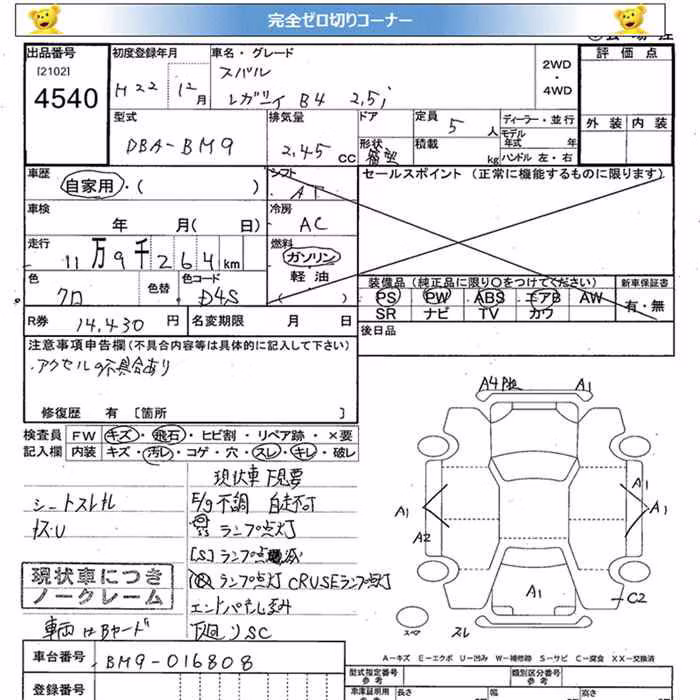 完全ゼロ切りコーナー
出品番号
[2102]
4540
初度登録年月
H22 12月
車名・グレード
スバル
レガシィ B4 2.5i
2WD
・
4WD
評価点
外装 内装
型式
DBA-BM9
排気量
2.45 CC
ドア
形状
定員 5 人
積載 kg
ディーラー・並行
モデル年式 年
ハンドル 左・右
車歴
自家用・( )
シフト
AT
セールスポイント (正常に機能するものに限ります)
車検
年 月( 日)
冷房
AC
走行
11万9千264km
燃料
ガソリン
軽油
( )
色
クロ
色替
色コード
D4S
装備品 (純正品に限り○をつけてください)
PS PW ABS エアB AW
SR ナビ TV カワ
新車保証書
有・無
R券 14,430 円
名変期限 月 日
後日品
注意事項申告欄(不具合内容等は具体的に記入して下さい)
・アクセルの不具合あり
修復歴 有 [箇所 ]
検査員記入欄
FW キズ・飛石・ヒビ割・リペア跡・×要
内装 キズ・汚レ・コゲ・穴・スレ・キレ・破レ
現状車下見要
シートスレ
E/g不調 自走不可
ランプ点灯
[S]ランプ点滅
ランプ点灯 CRUSEランプ点灯
エンドパネル歪み
下廻りSC
現状車につき
ノークレーム
車両はBヤード
A1
A1
A2
A1
A1
C2
スペア
スレ
A-キズ E-エクボ U-凹み W-補修跡 S-サビ C-腐食 XX-交換済
車台番号 BM9-016808
登録番号
型式指定番号
参考
類別区分番号
参考
車庫証明用
参考
長さ
幅
高さ